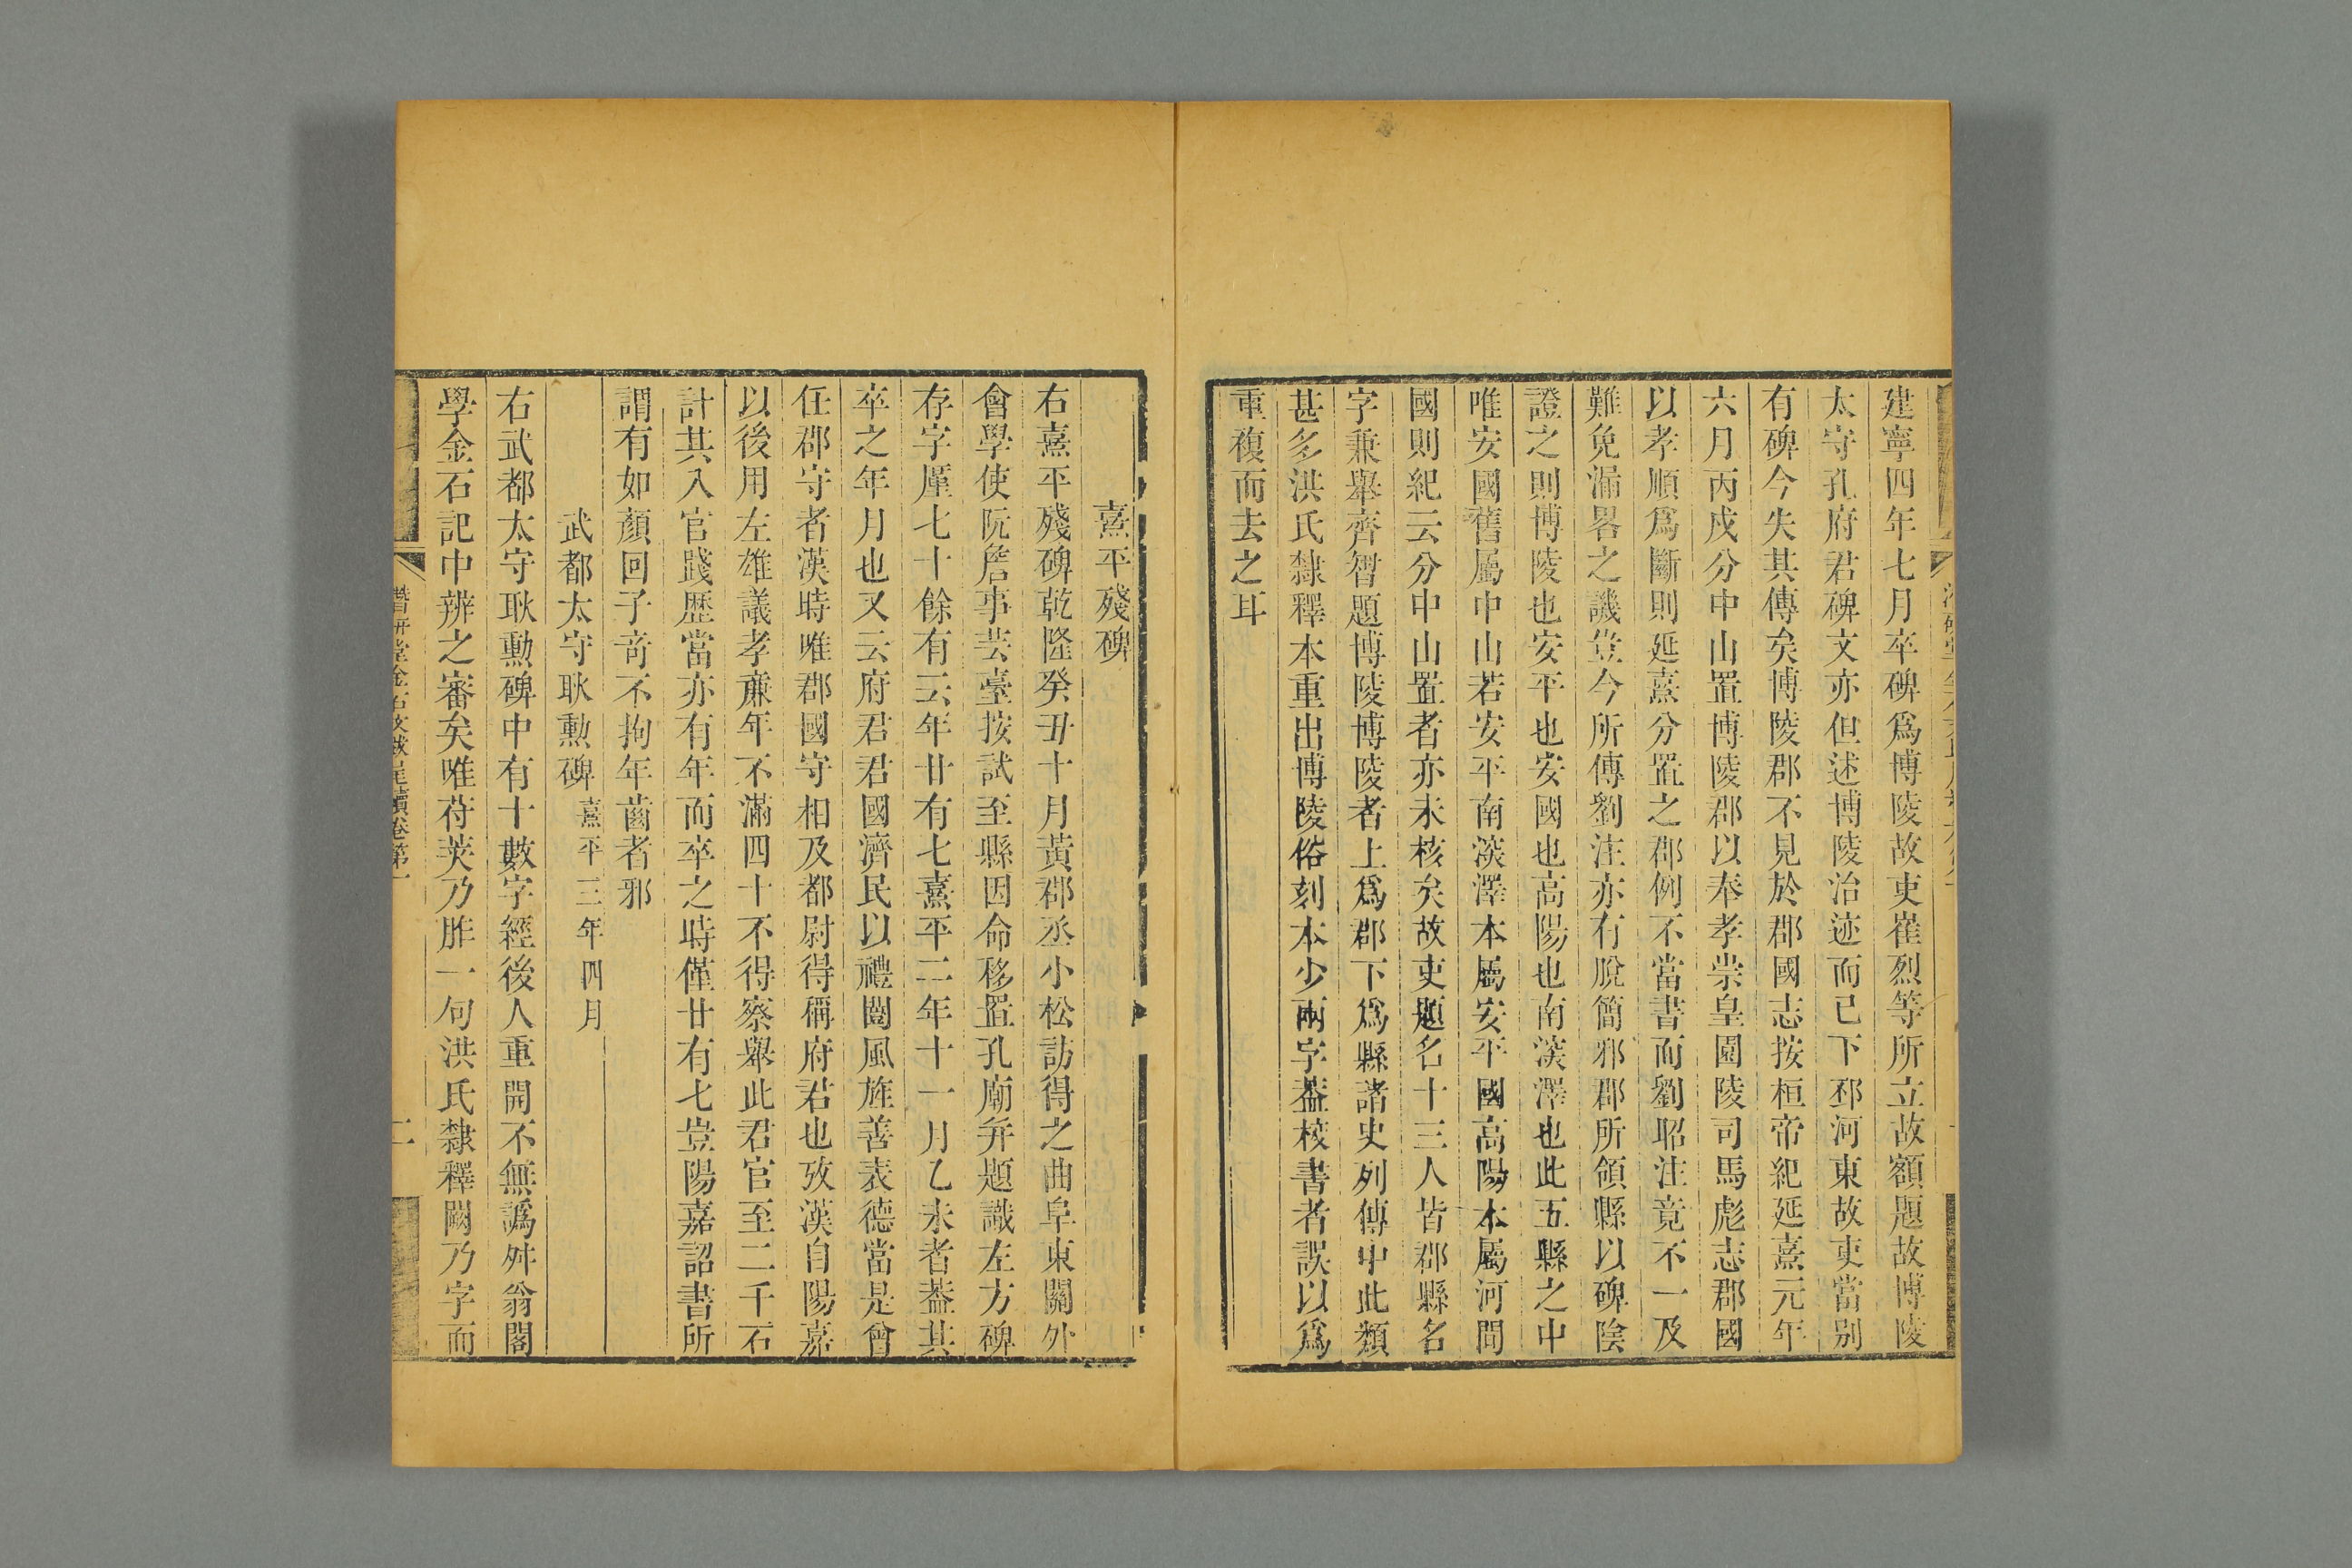 建寧四年七月卒碑爲博陵故吏崔烈等所立故額題故博陵
太守孔府君碑文亦但述博陵治迹而已下邳河東故吏當别
有碑今失其傳矣博陵郡不見於郡國志按桓帝紀延熹元年
六月丙戌分中山置博陵郡以奉孝崇皇園陵司馬彪志郡國
以孝順爲斷則延熹分置之郡例不當書而劉昭注竟不一及
難免漏畧之譏豈今所傳劉注亦有脫簡邪郡所領縣以碑陰
證之則博陵也安平也安國也高陽也南深澤也此五縣之中
唯安國舊屬中山若安平南深澤本屬安平國高陽本屬河間
國則紀云分中山置者亦未核矣故吏題名十三人皆郡縣名
字兼舉齊智題博陵博陵者上爲郡下爲縣諸史列傳中此類
甚多洪氏隸釋本重出博陵俗刻本少兩字葢校書者誤以爲
重複而去之耳
熹平殘碑
右熹平殘碑乾隆癸丑十月黃郡丞小松訪得之曲阜東關外
會學使阮詹事芸臺按試至縣因命移置孔廟弁題識左方碑
存字厪七十餘有云年廿有七熹平二年十一月乙未者葢其
卒之年月也又云府君君國濟民以禮闓風旌善表德當是曾
任郡守者漢時唯郡國守相及都尉得稱府君也攷漢自陽嘉
以後用左雄議孝亷年不滿四十不得察舉此君官至二千石
計其入官踐歷當亦有年而卒之時僅廿有七豈陽嘉詔書所
謂有如顏回子奇不拘年齒者邪
武都太守耿勳碑 熹平三年四月
右武都太守耿勳碑中有十數字經後人重開不無譌舛翁閣
學金石記中辨之審矣唯苻莢乃胙一句洪氏隸釋闕乃字而
潛研堂金石文跋尾續卷第一
二